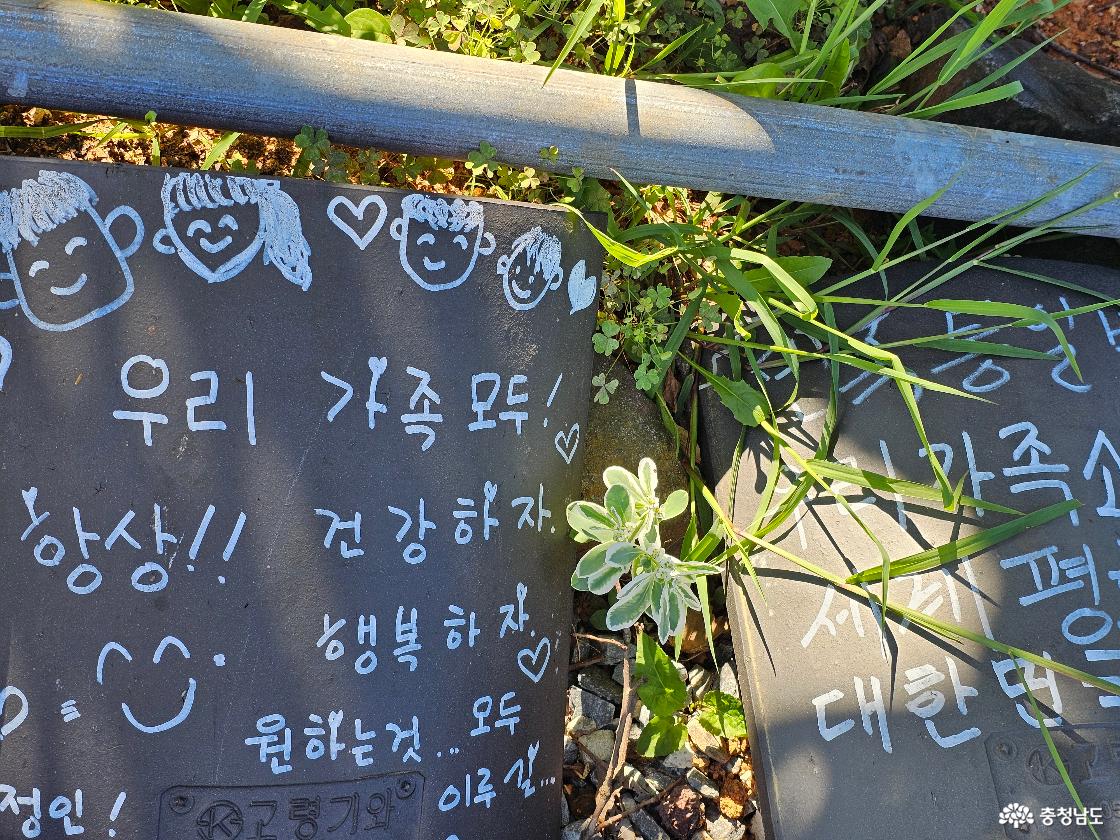 우리 가족 모두!
항상!! 건강하자.
행복하자.
원하는것... 모두
이루길...
정인!
고령기와
우리가족소
세계 평
대한민
충청남도